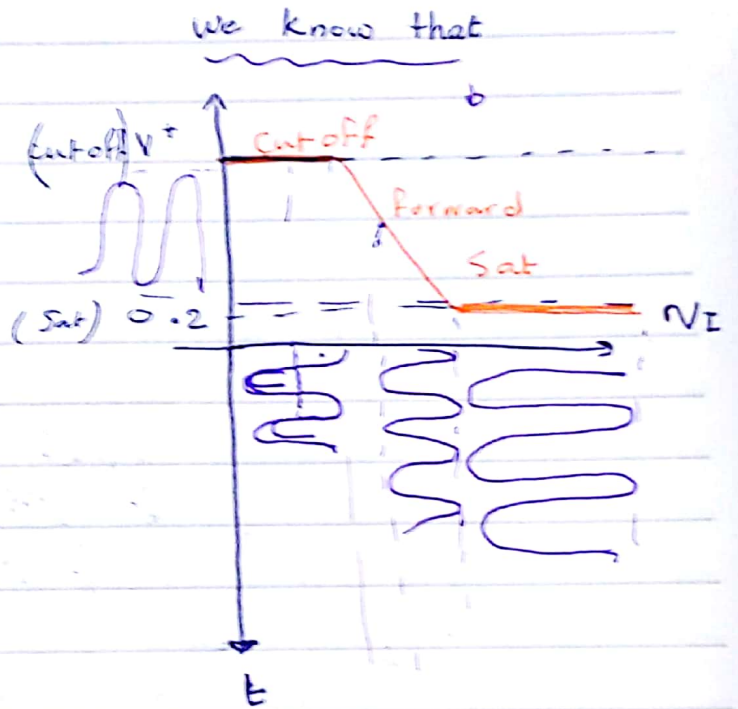 we know that
(cutoff) V+
cutoff
forward
Sat
(Sat) 0.2
VI
t